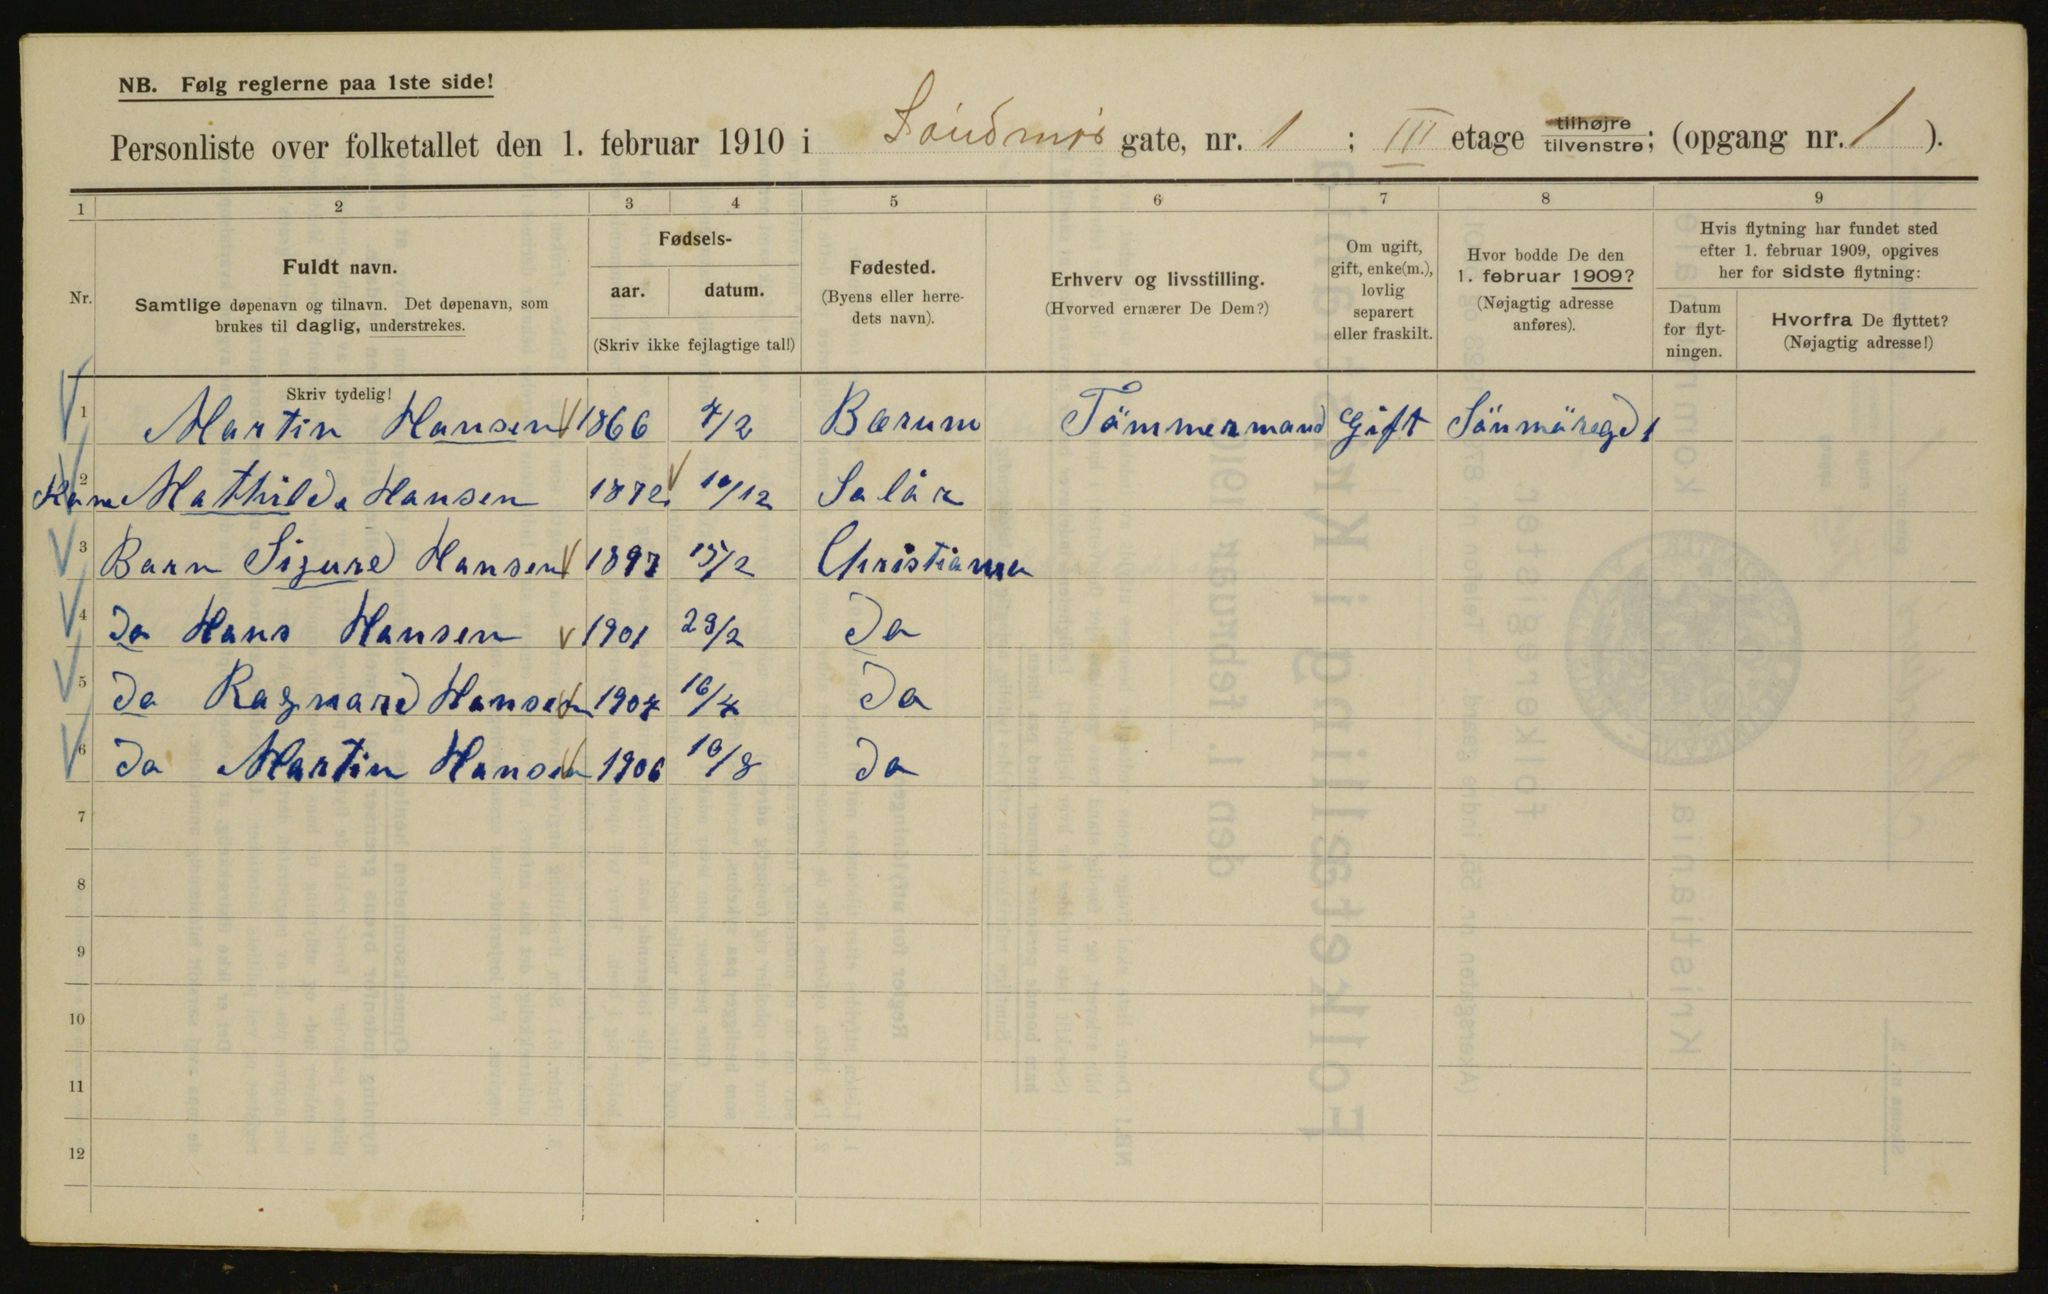 NB. Følg reglerne paa 1ste side!
Personliste over folketallet den 1. februar 1910 i Söndmörs gate, nr. 1 ; III etage tilhøjre tilvenstre; (opgang nr. 1 ).
1 2 3 4 5 6 7 8 9
Nr.
Fuldt navn.
Samtlige døpenavn og tilnavn. Det døpenavn, som
brukes til daglig, understrekes.
Fødsels-
aar. datum.
(Skriv ikke fejlagtige tal!)
Fødested.
(Byens eller herre-
dets navn).
Erhverv og livsstilling.
(Hvorved ernærer De Dem?)
Om ugift,
gift, enke(m.),
lovlig
separert
eller fraskilt.
Hvor bodde De den
1. februar 1909?
(Nøjagtig adresse
anføres).
Hvis flytning har fundet sted
efter 1. februar 1909, opgives
her for sidste flytning:
Datum
for flyt-
ningen.
Hvorfra De flyttet?
(Nøjagtig adresse!)
Skriv tydelig!
1 Martin Hansen 1866 4/2 Bærum Tömmermand Gift Sönmöregd 1
2 Kone Mathilda Hansen 1872 10/12 Solör
3 Barn Sigurd Hansen 1897 15/2 Christiania
4 Do Hans Hansen 1901 23/2 Do
5 Do Ragnard Hansen 1904 16/4 Do
6 Do Martin Hansen 1906 10/8 Do
7
8
9
10
11
12